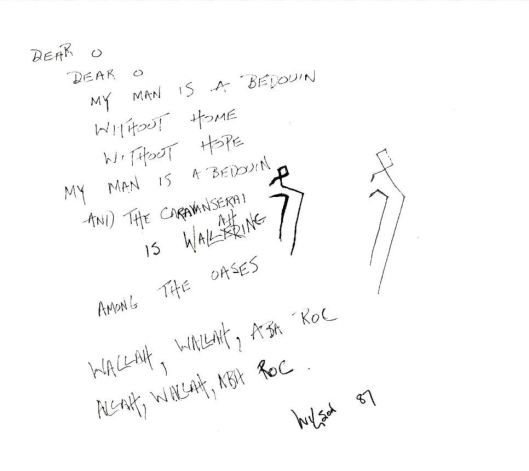 DEAR O
DEAR O
MY MAN IS A BEDOUIN
WITHOUT HOME
WITHOUT HOPE
MY MAN IS A BEDOUIN
AND THE CARAVANSERAI
IS WALLAHRING
AMONG THE OASES
WALLAH, WALLAH, ABA ROC
ALLAH, WALLAH, ABA ROC.
87